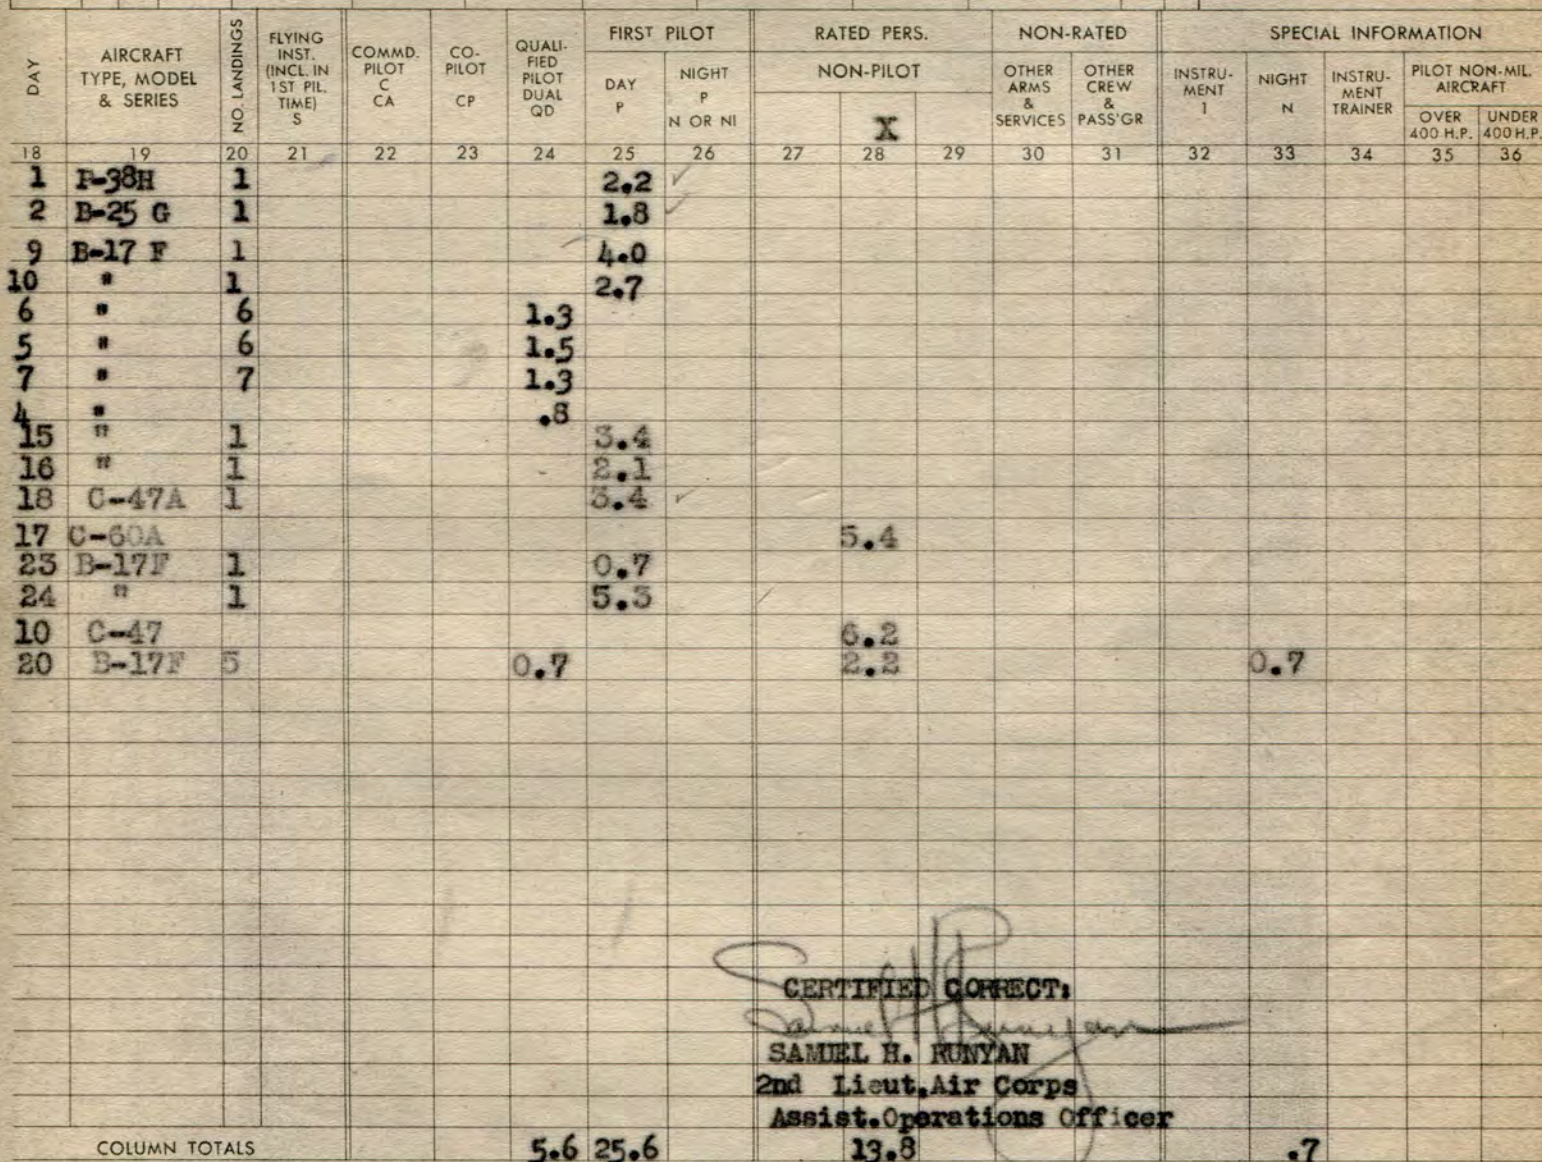 DAY AIRCRAFT TYPE, MODEL & SERIES NO. LANDINGS FLYING INST. (INCL. IN 1ST PIL. TIME) S COMMD. PILOT C CA CO-PILOT CP QUALI-FIED PILOT DUAL QD FIRST PILOT DAY P NIGHT P N OR NI RATED PERS. NON-PILOT X NON-RATED OTHER ARMS & SERVICES OTHER CREW & PASS'GR SPECIAL INFORMATION INSTRU-MENT I NIGHT N INSTRU-MENT TRAINER PILOT NON-MIL. AIRCRAFT OVER 400 H.P. UNDER 400 H.P.
18 19 20 21 22 23 24 25 26 27 28 29 30 31 32 33 34 35 36
1 P-38H 1 2.2 ✓
2 B-25 G 1 1.8 ✓
9 B-17 F 1 4.0
10 " 1 2.7
6 " 6 1.3
5 " 6 1.5
7 " 7 1.3
4 " .8
15 " 1 3.4
16 " 1 2.1
18 C-47A 1 3.4 ✓
17 C-60A 5.4
23 B-17F 1 0.7
24 " 1 5.3
10 C-47 6.2
20 B-17F 5 0.7 2.2 0.7
CERTIFIED CORRECT:
Samuel H Runyan
SAMUEL H. RUNYAN
2nd Lieut.Air Corps
Assist.Operations Officer
COLUMN TOTALS 5.6 25.6 13.8 .7